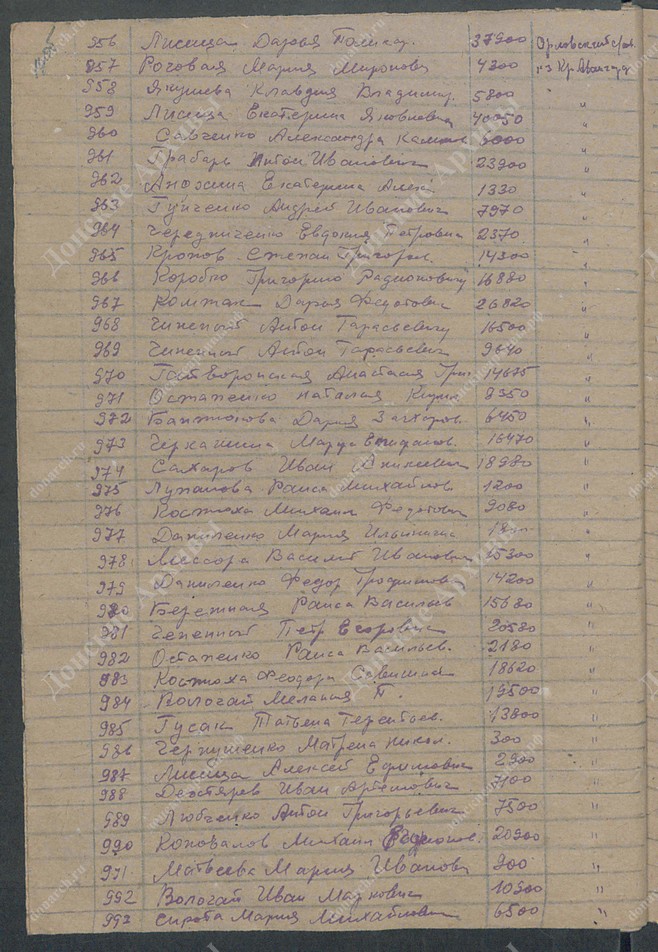 956 Лисица Дарья Поликар. 37900 Орловский с/сов.
957 Роговая Мария Мироновна 4300 к-з Кр. Авангард
958 Якушева Клавдия Владимир. 5800 "
959 Лисица Екатерина Яковлевна 40050 "
960 Савченко Александра "
961 Грабарь Антон Иванович 23900 "
962 Екатерина Алекс 1330 "
963 Гунченко Андрей Иванович 7970 "
964 Чередниченко Евдокия Петровна 2370 "
965 Кропов Степан Григорьев. 14300 "
966 Коробко Григорию Радионовичу 16880 "
967 Дарья Федотовн 26820 "
968 Чиненый Антон Тарасьевичу 16500 "
969 Чиненный Антон Тарасьевич 9640 "
970 Анастасия Григ 14675 "
971 Остапенко Наталия 9350 "
972 Дария Захаров. 6450 "
973 Черкашина Марфа 16470 "
974 Сахаров Иван 18980 "
975 Луханова Раиса Михайлов 1200 "
976 Костюха Михаил Федотович 9080 "
977 Даниленко Мария Ильинична "
978 Мессора Василий Иванович 15300 "
979 Даниленко Федор Трофимов 14200 "
980 Бережная Раиса Васильев 15680 "
981 Чененный Петр Егорович 20580 "
982 Остапенко Раиса Васильев. 2180 "
983 Костюха Феодора Савишна 18620 "
984 Вологай Мелания П. 19500 "
985 Гусак Татьяна Терентьев. 13800 "
986 Матрена Никол. 300 "
987 Лисица Алексей Ефимович 2900 "
988 Дегтярев Иван Артемович 7100 "
989 Любченко Антон Григорьевич 7500 "
990 Коновалов Михаил 20900 "
991 Матвеева Мария Ивановн 900 "
992 Вологай Иван Маркович 10900 "
993 Сирота Мария Михайловн 6500 "